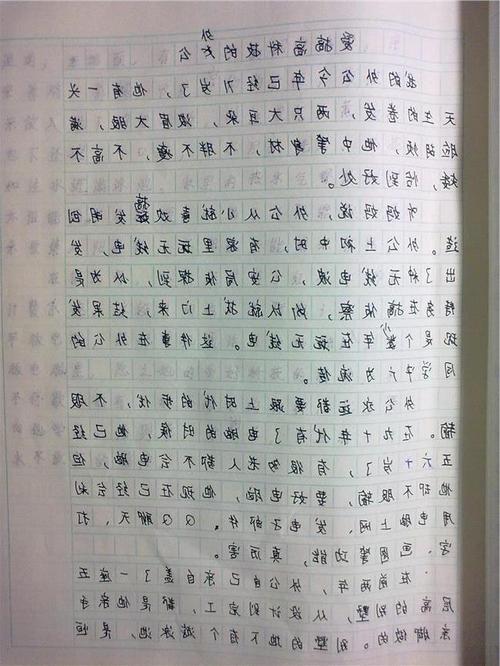 爱搞高科技的外公
我的外公今年已经71岁了，他有一头
天生的卷发，两只大耳朵，浓眉大眼，满
脸的皱纹，他中等身材，不胖不瘦，不高不
矮，恰到好处。
听妈妈说，外公从小就喜欢搞发明创
造。外公上初中时，在家里玩无线电，发
出了种无线电波，公安局侦探到，以为是
特务在搞侦察，所以就找上门来，结果发
现是个少年在玩无线电。这件事在外公的
同学中广为流传。
外公永远都要跟上时代的步伐，不服
输。在九十年代有了电脑的时候，他已经
五六十岁了，有很多老人都不会电脑，但
他却不服输，要学好电脑，他现在已经会利
用电脑上网，发电子邮件，QQ聊天，打
字，画图等功能，真厉害。
在前两年，外公自己亲自盖了一座五
层高的别墅，从设计到完工，都是他亲手
亲脚做的。别墅的地下有个游泳池，是恒